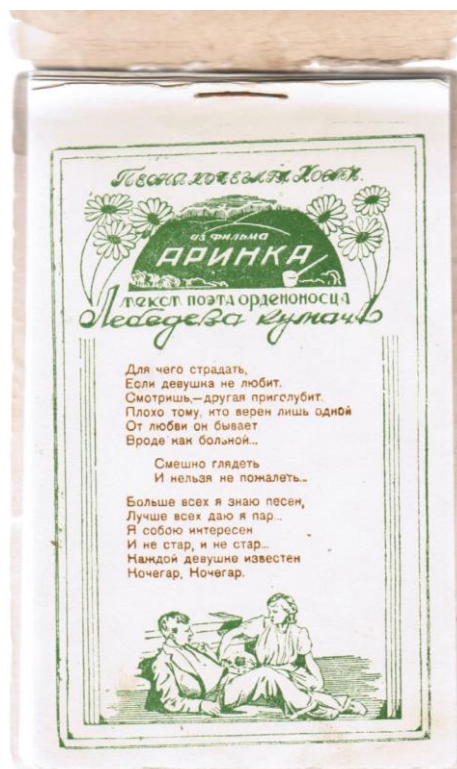 Песня кочегара Кости.
из фильма
АРИНКА
текст поэта орденоносца
Лебедева Кумач
Для чего страдать,
Если девушка не любит.
Смотришь,—другая приголубит.
Плохо тому, кто верен лишь одной
От любви он бывает
Вроде как больной...
Смешно глядеть
И нельзя не пожалеть...
Больше всех я знаю песен,
Лучше всех даю я пар...
Я собою интересен
И не стар, и не стар...
Каждой девушке известен
Кочегар, Кочегар.